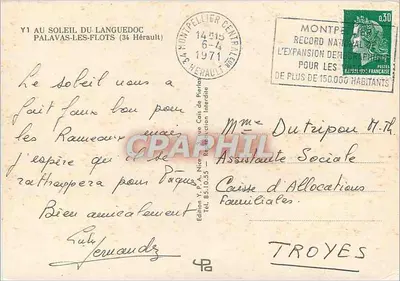 Y1 AU SOLEIL DU LANGUEDOC
PALAVAS-LES-FLOTS (34 Hérault)
34 MONTPELLIER CENTRALISATEUR
14H15
6-4
1971
HERAULT
MONTPE
RECORD NATIONAL
L'EXPANSION DEMO
POUR LES
DE PLUS DE 150.000 HABITANTS
0,30
Le soleil nous a
fait faux bon pour
les Rameaux mais
j'espère qu'il se
rattrapera pour Pâques
Bien amicalement
Hernandez
Mme Dutripon M-Th
Assistante Sociale
Caisse d'Allocations
Familiales
TROYES
CPAPHIL